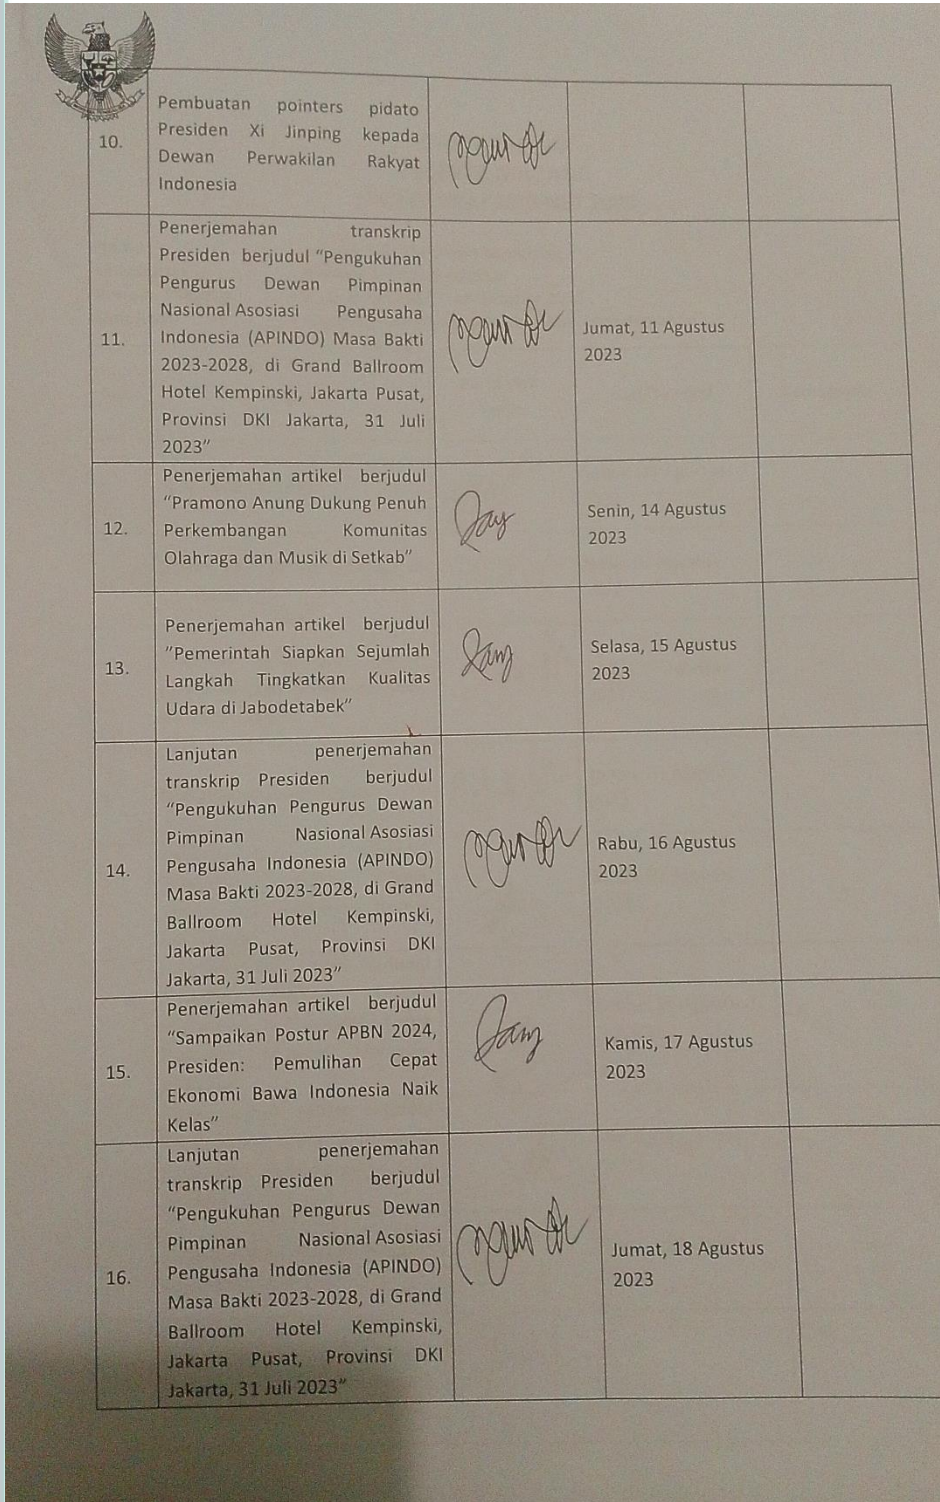 10.
Pembuatan pointers pidato
Presiden Xi Jinping kepada
Dewan Perwakilan Rakyat
Indonesia
11.
Penerjemahan transkrip
Presiden berjudul “Pengukuhan
Pengurus Dewan Pimpinan
Nasional Asosiasi Pengusaha
Indonesia (APINDO) Masa Bakti
2023-2028, di Grand Ballroom
Hotel Kempinski, Jakarta Pusat,
Provinsi DKI Jakarta, 31 Juli
2023”
Jumat, 11 Agustus
2023
12.
Penerjemahan artikel berjudul
“Pramono Anung Dukung Penuh
Perkembangan Komunitas
Olahraga dan Musik di Setkab”
Senin, 14 Agustus
2023
13.
Penerjemahan artikel berjudul
”Pemerintah Siapkan Sejumlah
Langkah Tingkatkan Kualitas
Udara di Jabodetabek”
Selasa, 15 Agustus
2023
14.
Lanjutan penerjemahan
transkrip Presiden berjudul
“Pengukuhan Pengurus Dewan
Pimpinan Nasional Asosiasi
Pengusaha Indonesia (APINDO)
Masa Bakti 2023-2028, di Grand
Ballroom Hotel Kempinski,
Jakarta Pusat, Provinsi DKI
Jakarta, 31 Juli 2023”
Rabu, 16 Agustus
2023
15.
Penerjemahan artikel berjudul
“Sampaikan Postur APBN 2024,
Presiden: Pemulihan Cepat
Ekonomi Bawa Indonesia Naik
Kelas”
Kamis, 17 Agustus
2023
16.
Lanjutan penerjemahan
transkrip Presiden berjudul
“Pengukuhan Pengurus Dewan
Pimpinan Nasional Asosiasi
Pengusaha Indonesia (APINDO)
Masa Bakti 2023-2028, di Grand
Ballroom Hotel Kempinski,
Jakarta Pusat, Provinsi DKI
Jakarta, 31 Juli 2023”
Jumat, 18 Agustus
2023